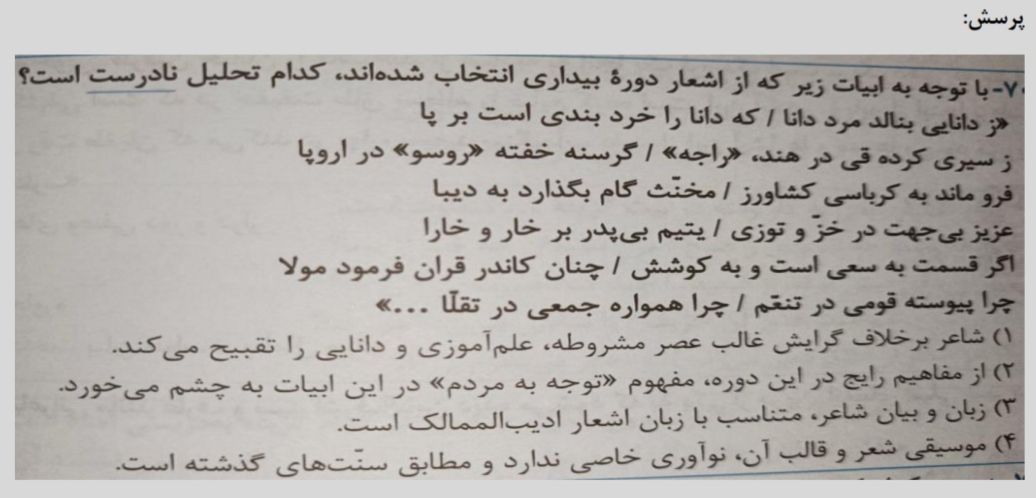 پرسش:
۷۰- با توجه به ابیات زیر که از اشعار دورهٔ بیداری انتخاب شده‌اند، کدام تحلیل نادرست است؟
«ز دانایی بنالد مرد دانا / که دانا را خرد بندی است بر پا
ز سیری کرده قی در هند، «راجه» / گرسنه خفته «روسو» در اروپا
فرو ماند به کرباسی کشاورز / مخنّث گام بگذارد به دیبا
عزیز بی‌جهت در خزّ و توزی / یتیم بی‌پدر بر خار و خارا
اگر قسمت به سعی است و به کوشش / چنان کاندر قران فرمود مولا
چرا پیوسته قومی در تنعّم / چرا همواره جمعی در تقلّا ...»
۱) شاعر برخلاف گرایش غالب عصر مشروطه، علم‌آموزی و دانایی را تقبیح می‌کند.
۲) از مفاهیم رایج در این دوره، مفهوم «توجه به مردم» در این ابیات به چشم می‌خورد.
۳) زبان و بیان شاعر، متناسب با زبان اشعار ادیب‌الممالک است.
۴) موسیقی شعر و قالب آن، نوآوری خاصی ندارد و مطابق سنّت‌های گذشته است.